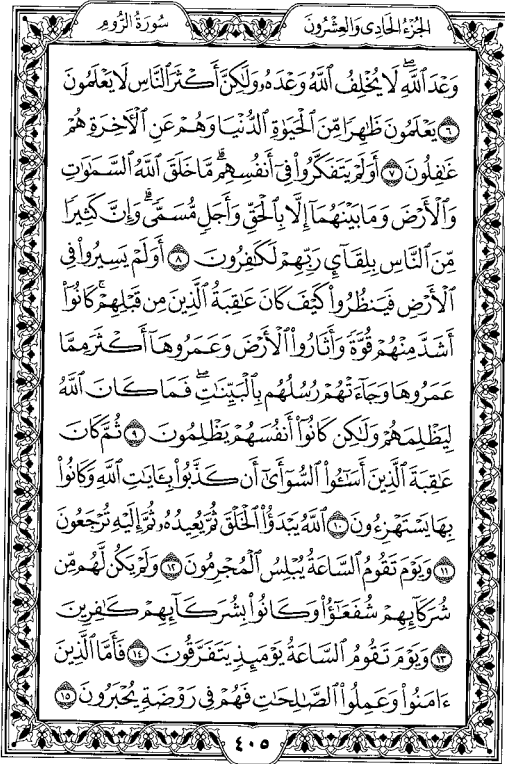 الجزء الحادي والعشرون
سورة الروم
وَعْدَ ٱللَّهِۖ لَا يُخْلِفُ ٱللَّهُ وَعْدَهُۥ وَلَٰكِنَّ أَكْثَرَ ٱلنَّاسِ لَا يَعْلَمُونَ
٦ يَعْلَمُونَ ظَٰهِرًا مِّنَ ٱلْحَيَوٰةِ ٱلدُّنْيَا وَهُمْ عَنِ ٱلْأَخِرَةِ هُمْ
غَٰفِلُونَ ٧ أَوَلَمْ يَتَفَكَّرُوا۟ فِىٓ أَنفُسِهِمۗ مَّا خَلَقَ ٱللَّهُ ٱلسَّمَٰوَٰتِ
وَٱلْأَرْضَ وَمَا بَيْنَهُمَآ إِلَّا بِٱلْحَقِّ وَأَجَلٍ مُّسَمًّىۗ وَإِنَّ كَثِيرًا
مِّنَ ٱلنَّاسِ بِلِقَآئِ رَبِّهِمْ لَكَٰفِرُونَ ٨ أَوَلَمْ يَسِيرُوا۟ فِى
ٱلْأَرْضِ فَيَنظُرُوا۟ كَيْفَ كَانَ عَٰقِبَةُ ٱلَّذِينَ مِن قَبْلِهِمْۚ كَانُوٓا۟
أَشَدَّ مِنْهُمْ قُوَّةً وَأَثَارُوا۟ ٱلْأَرْضَ وَعَمَرُوهَآ أَكْثَرَ مِمَّا
عَمَرُوهَا وَجَآءَتْهُمْ رُسُلُهُم بِٱلْبَيِّنَٰتِۖ فَمَا كَانَ ٱللَّهُ
لِيَظْلِمَهُمْ وَلَٰكِن كَانُوٓا۟ أَنفُسَهُمْ يَظْلِمُونَ ٩ ثُمَّ كَانَ
عَٰقِبَةَ ٱلَّذِينَ أَسَٰٓـُٔوا۟ ٱلسُّوٓأَىٰٓ أَن كَذَّبُوا۟ بِـَٔايَٰتِ ٱللَّهِ وَكَانُوا۟
بِهَا يَسْتَهْزِءُونَ ١٠ ٱللَّهُ يَبْدَؤُا۟ ٱلْخَلْقَ ثُمَّ يُعِيدُهُۥ ثُمَّ إِلَيْهِ تُرْجَعُونَ
١١ وَيَوْمَ تَقُومُ ٱلسَّاعَةُ يُبْلِسُ ٱلْمُجْرِمُونَ ١٢ وَلَمْ يَكُن لَّهُم مِّن
شُرَكَآئِهِمْ شُفَعَٰٓؤُا۟ وَكَانُوا۟ بِشُرَكَآئِهِمْ كَٰفِرِينَ
١٣ وَيَوْمَ تَقُومُ ٱلسَّاعَةُ يَوْمَئِذٍ يَتَفَرَّقُونَ ١٤ فَأَمَّا ٱلَّذِينَ
ءَامَنُوا۟ وَعَمِلُوا۟ ٱلصَّٰلِحَٰتِ فَهُمْ فِى رَوْضَةٍ يُحْبَرُونَ ١٥
٤٠٥